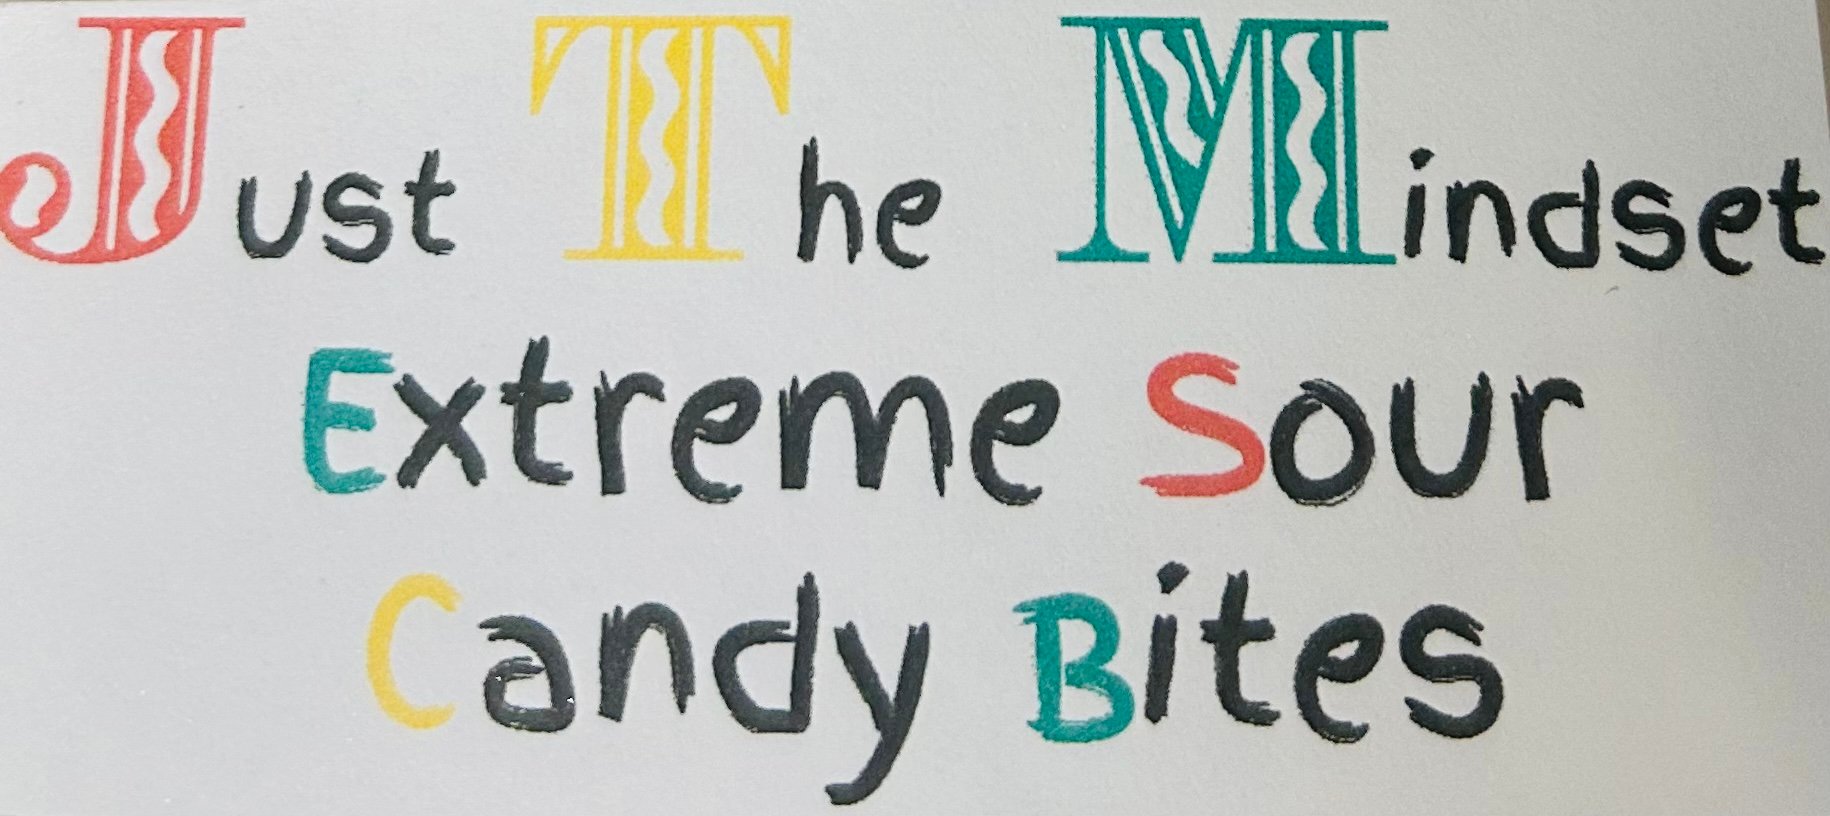 Just The Mindset
Extreme Sour
Candy Bites